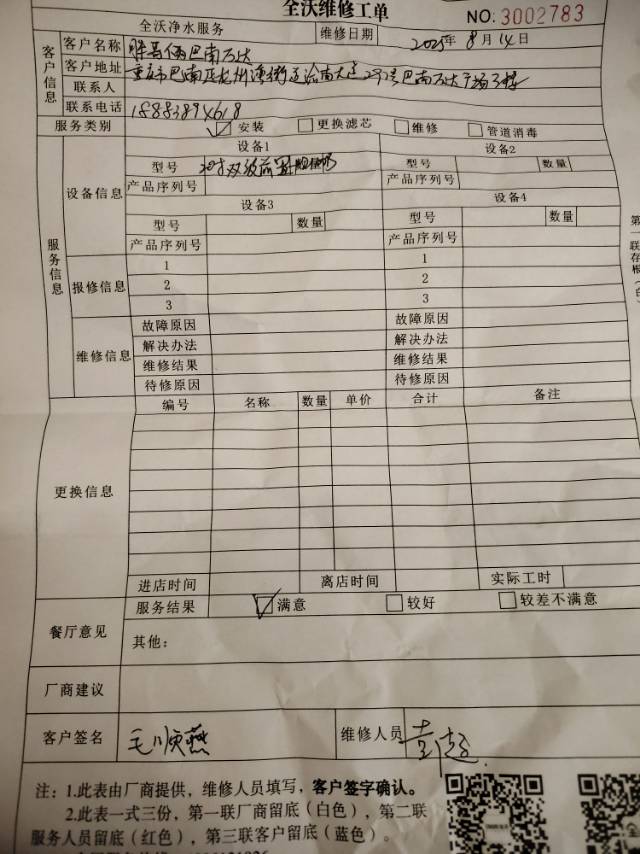 全沃维修工单
NO: 3002783
全沃净水服务 维修日期 2025年8月14日
客户信息
客户名称 胖哥俩巴南万达
客户地址 重庆市巴南区龙洲湾街道渝南大道297号巴南万达广场3楼
联系人
联系电话 18883894618
服务类别 安装 更换滤芯 维修 管道消毒
服务信息
设备信息
设备1 设备2
型号 20寸双级前置 型号 数量
产品序列号 产品序列号
设备3 设备4
型号 数量 型号 数量
产品序列号 产品序列号
报修信息
1 1
2 2
3 3
维修信息
故障原因 故障原因
解决办法 解决办法
维修结果 维修结果
待修原因 待修原因
更换信息
编号 名称 数量 单价 合计 备注
进店时间 离店时间 实际工时
餐厅意见
服务结果 满意 较好 较差不满意
其他：
厂商建议
客户签名 毛顺燕 维修人员
注：1.此表由厂商提供，维修人员填写，客户签字确认。
2.此表一式三份，第一联厂商留底（白色），第二联
服务人员留底（红色），第三联客户留底（蓝色）。
第一联存根（白